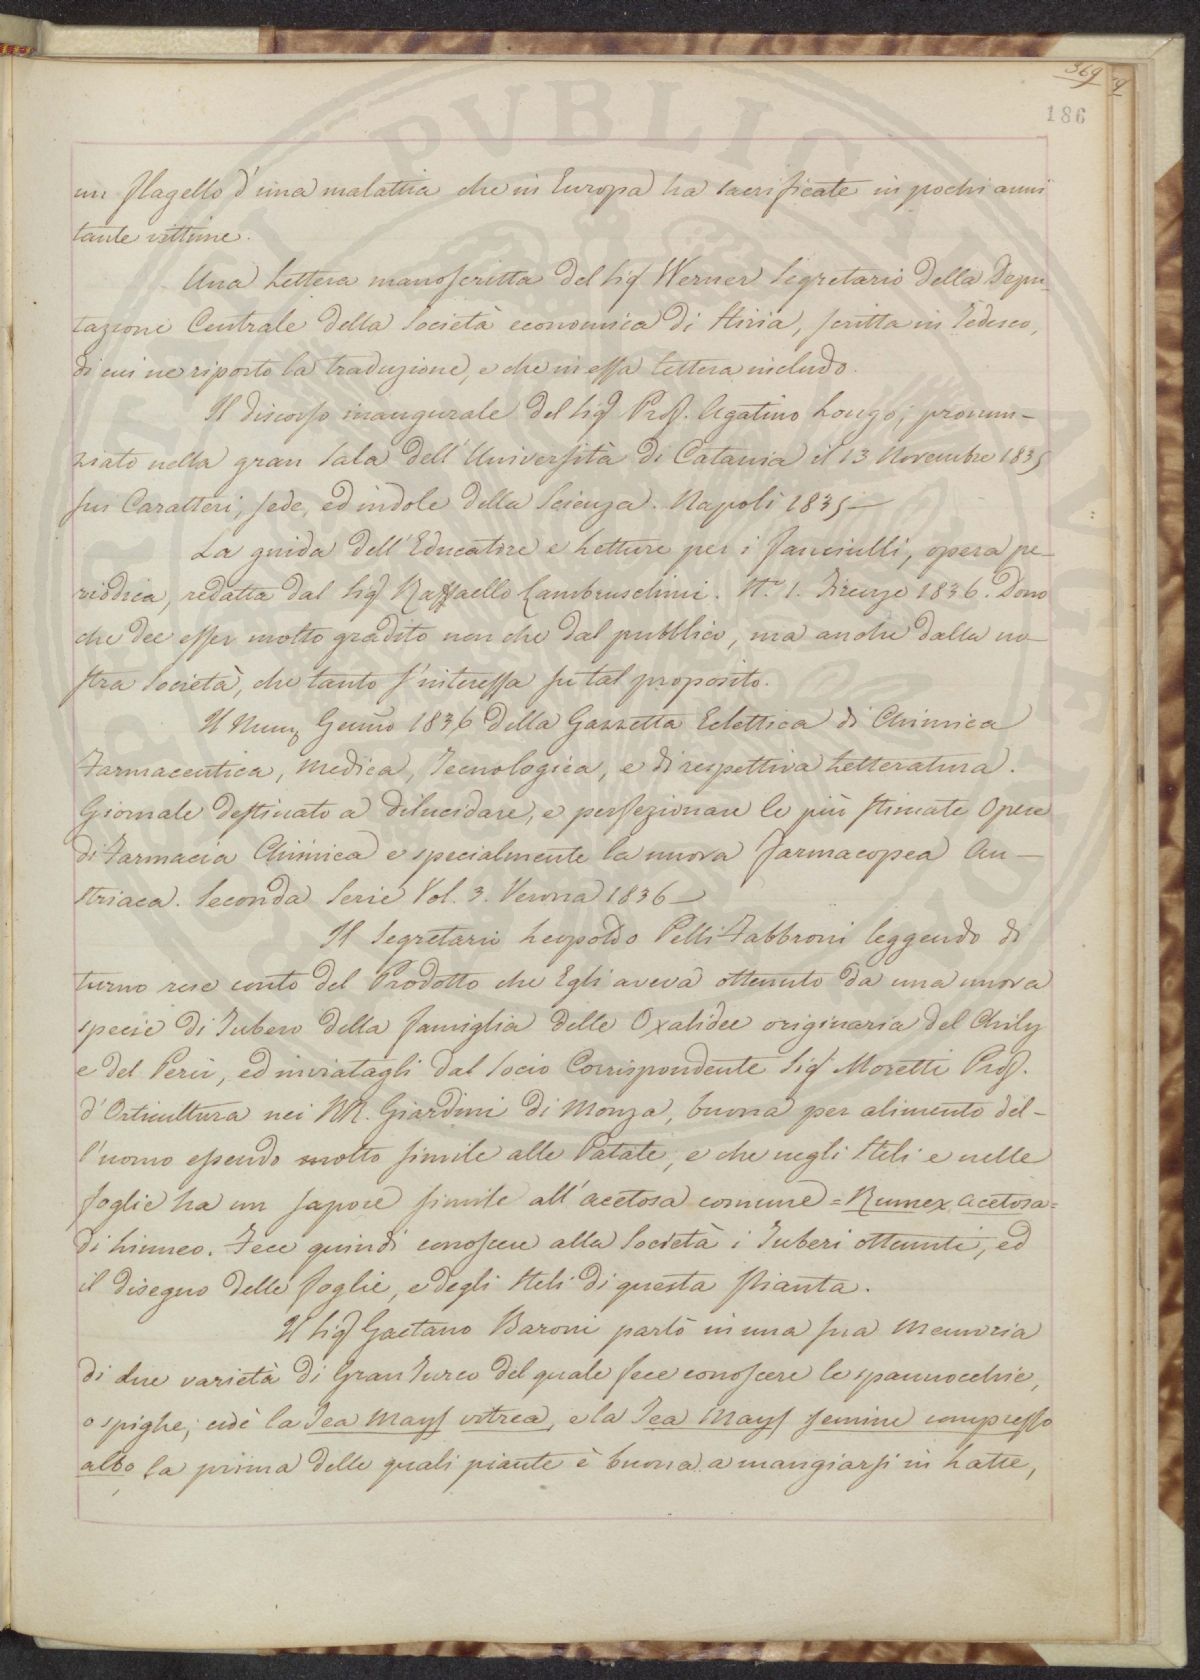 369
186
un flagello d'una malattia che in Europa ha sacrificate in pochi anni
tante vittime.
Una Lettera manoscritta del Sig. Werner Segretario della Depu-
tazione Centrale della Società economica di Stiria, scritta in Tedesco,
di cui ne riporto la traduzione, e che in essa lettera includo.
Il discorso inaugurale del Sig. Prof. Agatino Longo, pronun-
ziato nella gran Sala dell'Università di Catania il 13 Novembre 1835
sui Caratteri, sede, ed indole della Scienza. Napoli 1835 —
La guida dell'Educatore e Letture per i fanciulli, opera pe-
riodica, redatta dal Sig. Raffaello Lambruschini. N.° 1. Firenze 1836. Dono
che dee esser molto gradito non che dal pubblico, ma anche dalla no-
stra Società, che tanto s'interessa su tal proposito.
Il Num. Genn.o 1836 della Gazzetta Eclettica di Chimica
Farmaceutica, Medica, Tecnologica, e di respettiva Letteratura.
Giornale destinato a dilucidare, e perfezionare le più stimate Opere
di Farmacia Chimica e specialmente la nuova Farmacopea Au-
striaca. Seconda Serie Vol. 3. Verona 1836 —
Il Segretario Leopoldo Pelli Fabbroni leggendo di
turno rese conto del Prodotto che Egli aveva ottenuto da una nuova
specie di Tubero della famiglia delle Oxalidee originaria del Chily
e del Perù, ed inviatagli dal Socio Corrispondente Sig. Moretti Prof.
d'Orticultura nei RR. Giardini di Monza, buona per alimento del-
l'uomo essendo molto simile alle Patate, e che negli Steli e nelle
foglie ha un sapore simile all'acetosa comune = Rumex acetosa =
di Linneo. Fece quindi conoscere alla Società i Tuberi ottenuti, ed
il disegno delle foglie, e degli Steli di questa pianta.
Il Sig. Gaetano Baroni parlò in una sua Memoria
di due varietà di Gran Turco del quale fece conoscere le spannocchie,
o spighe, cioè la Zea Mays vitrea, e la Zea Mays semine compresso
albo, la prima delle quali piante è buona a mangiarsi in Latte,